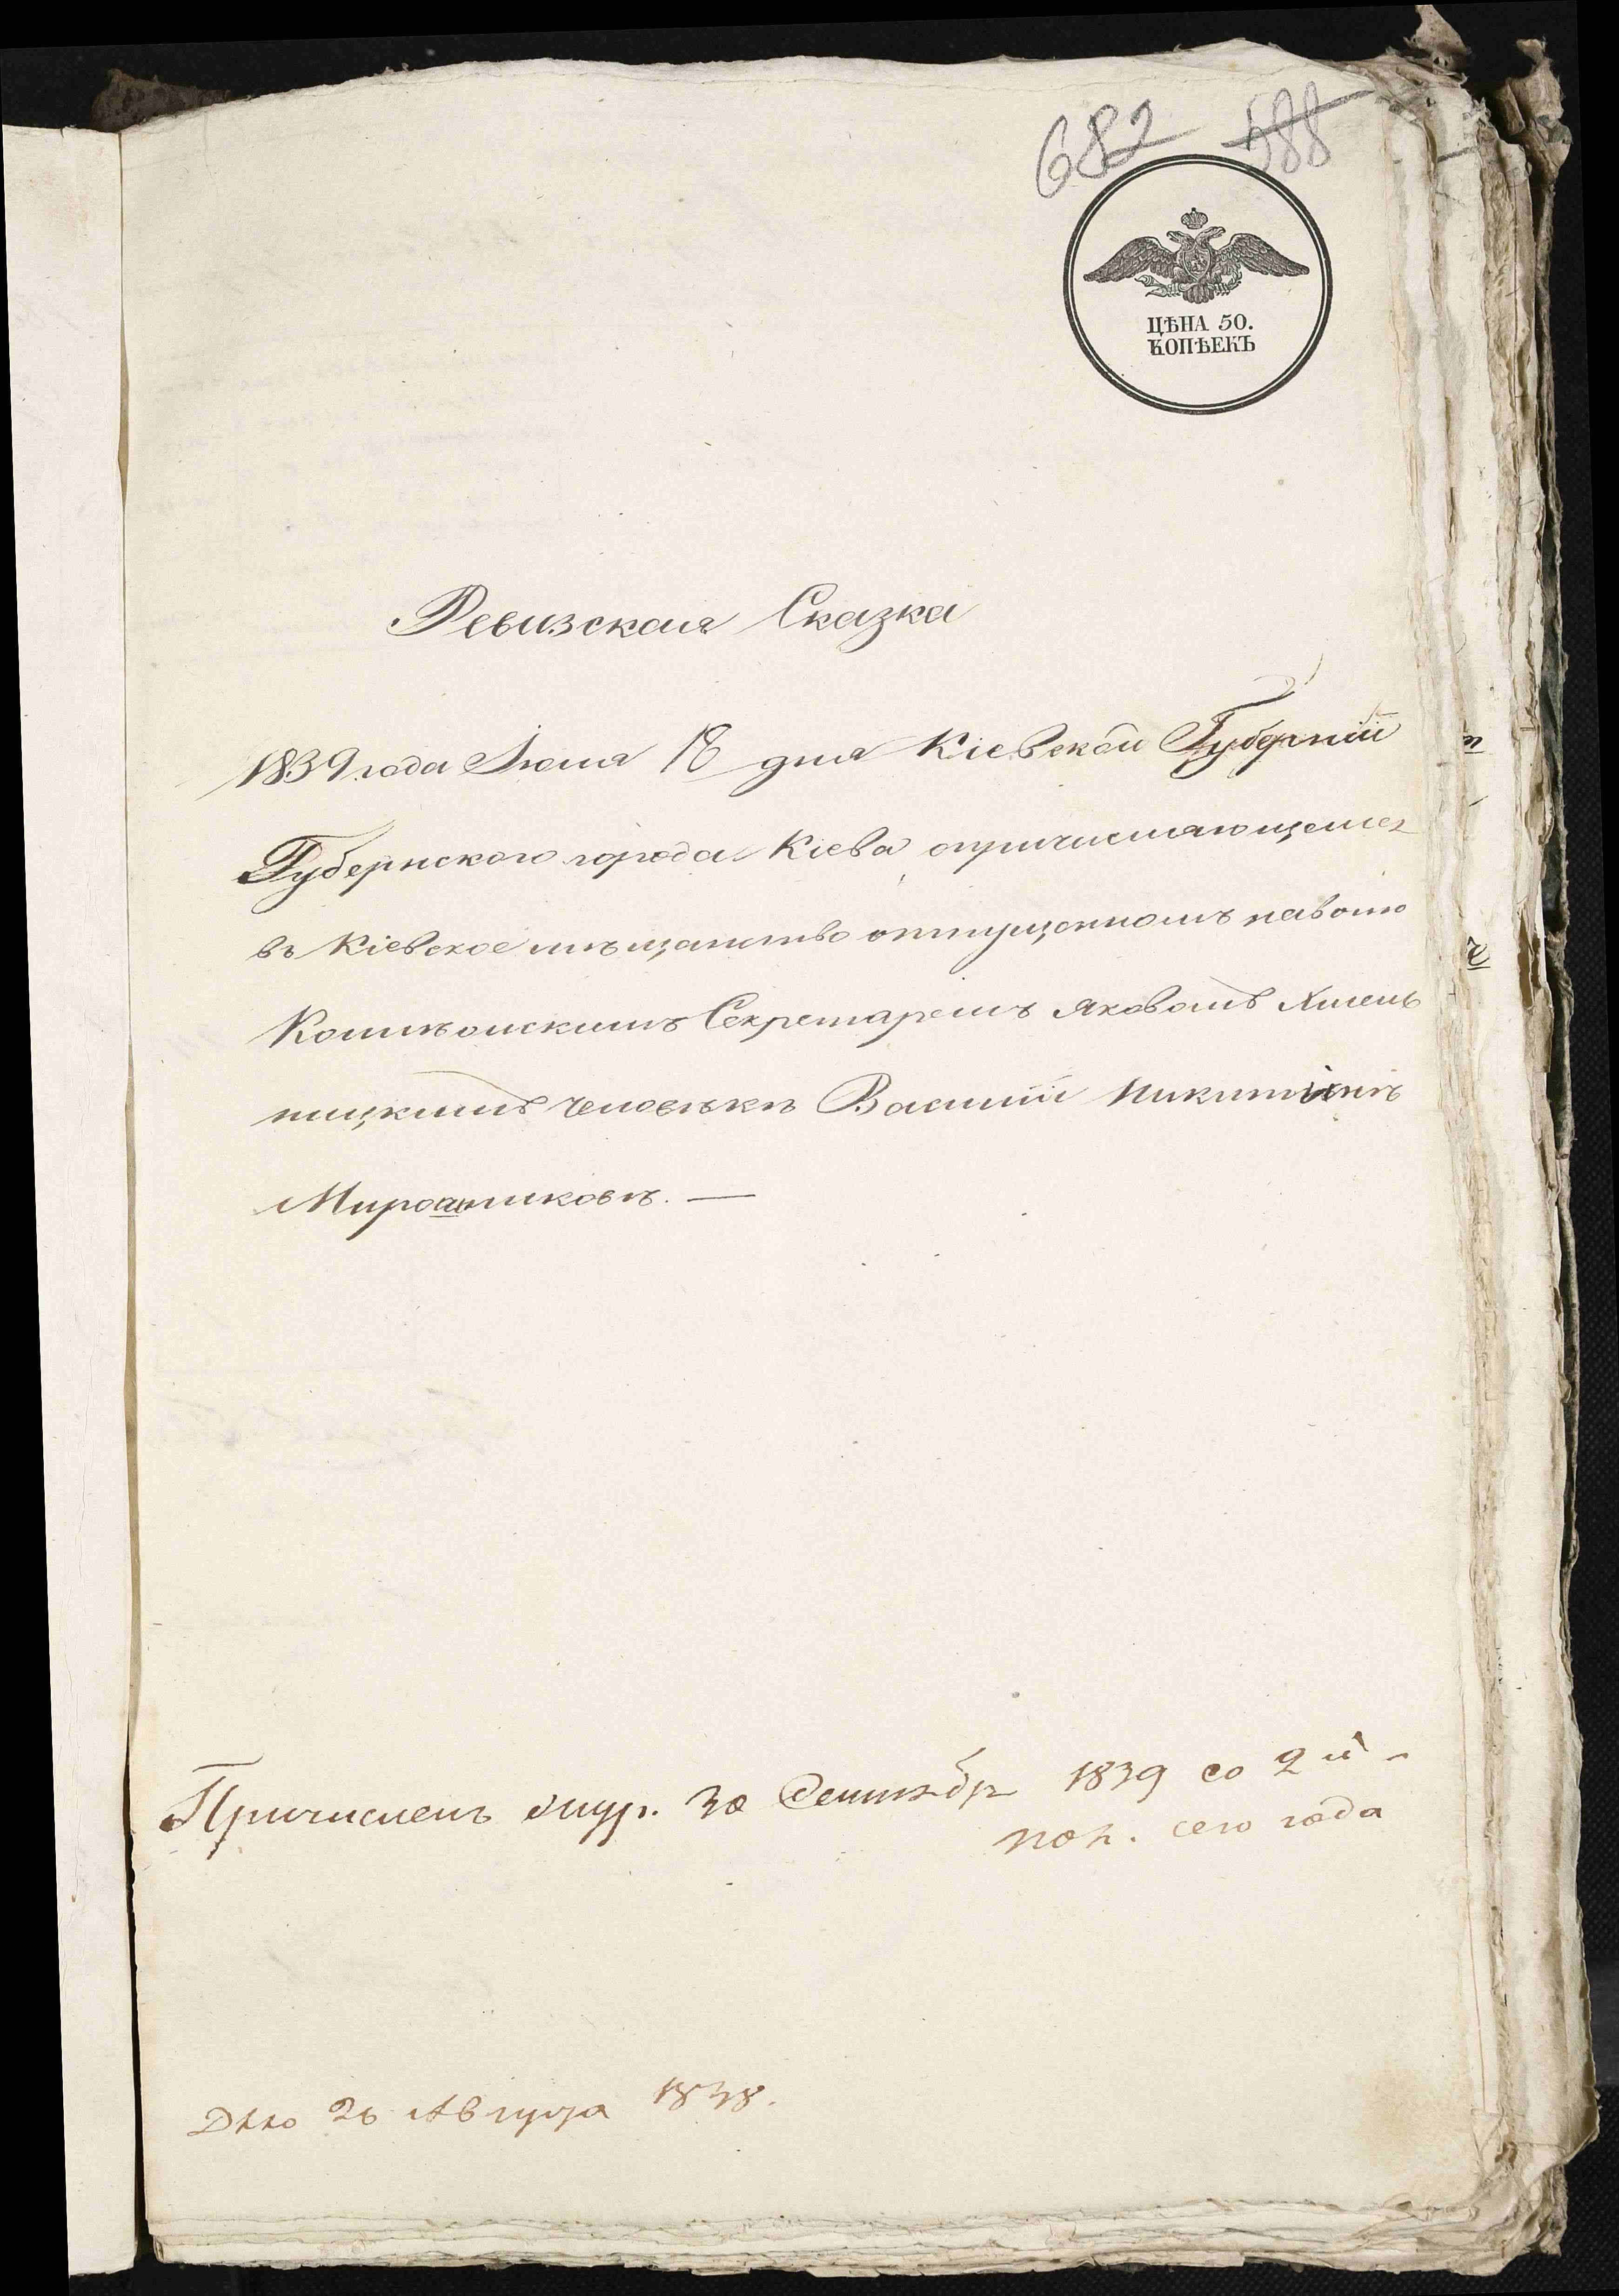 682 588
ЦѢНА 50.
КОПѢЕКЪ
Ревизская Сказка
1839 года Іюля 18 дня Кіевской Губерніи
Губернскаго города Кіева о причисляющемся
въ Кіевское мѣщанство отпущенномъ на волю
Коллѣжскимъ Секретаремъ Яковомъ Хмель
ницкимъ человѣкѣ Василіи Никитинѣ
Мирошниковѣ. —
Причисленъ 30 1839 со 2й
пол. сего года
Дѣло 26 Августа 1838.